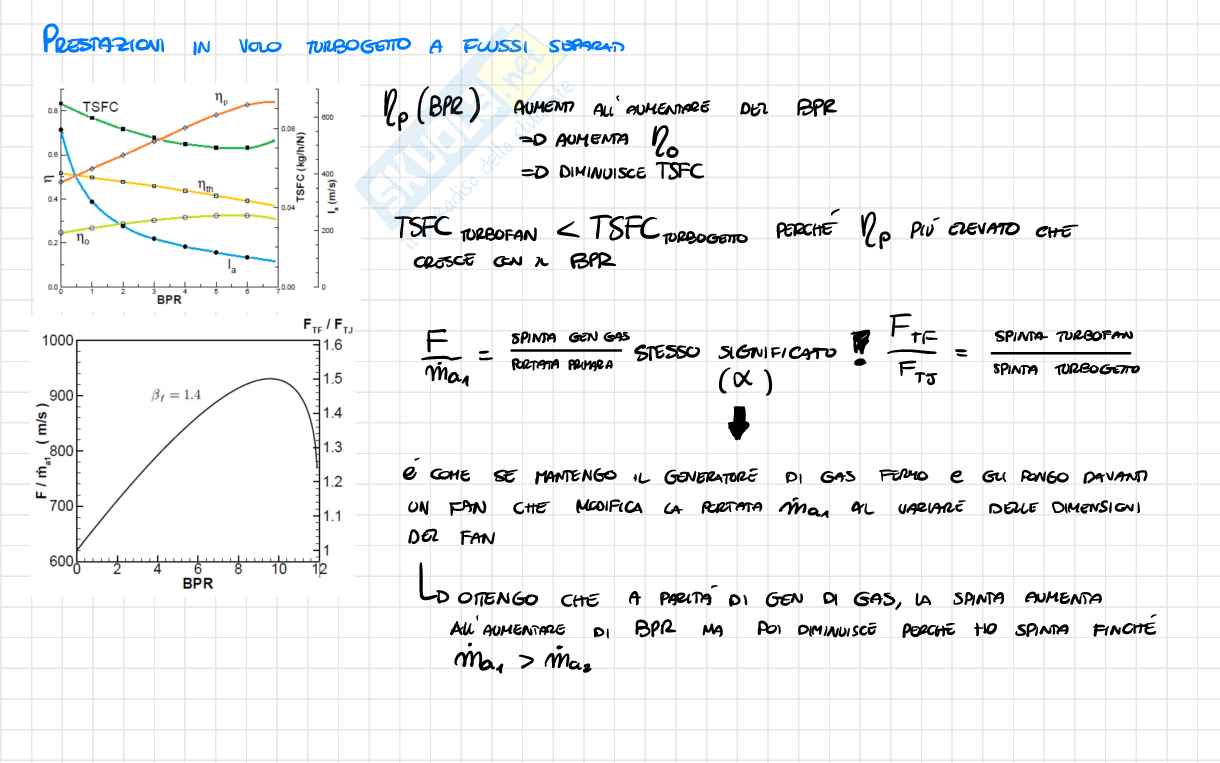 PRESTAZIONI IN VOLO TURBOGETTO A FLUSSI SEPARATI
SKUOLA.net
il paradiso dello studente
TSFC
ηp
η
ηth
ηo
Ia
0.8
0.6
0.4
0.2
0.0
0 1 2 3 4 5 6 7
BPR
0.08
0.04
0.00
TSFC (kg/h/N)
600
400
200
0
Ia (m/s)
ηp (BPR) AUMENTI ALL'AUMENTARE DEL BPR
=D AUMENTA ηo
=D DIMINUISCE TSFC
TSFC TURBOFAN < TSFC TURBOGETTO PERCHÉ ηp PIÙ ELEVATO CHE
CRESCE CON IL BPR
FTF / FTJ
1000
900
800
700
600
F / ṁa1 ( m/s )
βf = 1.4
1.6
1.5
1.4
1.3
1.2
1.1
1
0 2 4 6 8 10 12
BPR
F / ṁa1 = SPINTA GEN GAS / PORTATA PRIMARIA STESSO SIGNIFICATO ! FTF / FTJ = SPINTA TURBOFAN / SPINTA TURBOGETTO
(α)
È COME SE MANTENGO IL GENERATORE DI GAS FERMO E GLI PONGO DAVANTI
UN FAN CHE MODIFICA LA PORTATA ṁa1 AL VARIARE DELLE DIMENSIONI
DEL FAN
OTTENGO CHE A PARITÀ DI GEN DI GAS, LA SPINTA AUMENTA
ALL'AUMENTARE DI BPR MA POI DIMINUISCE PERCHÉ HO SPINTA FINCHÉ
ṁa1 > ṁa2